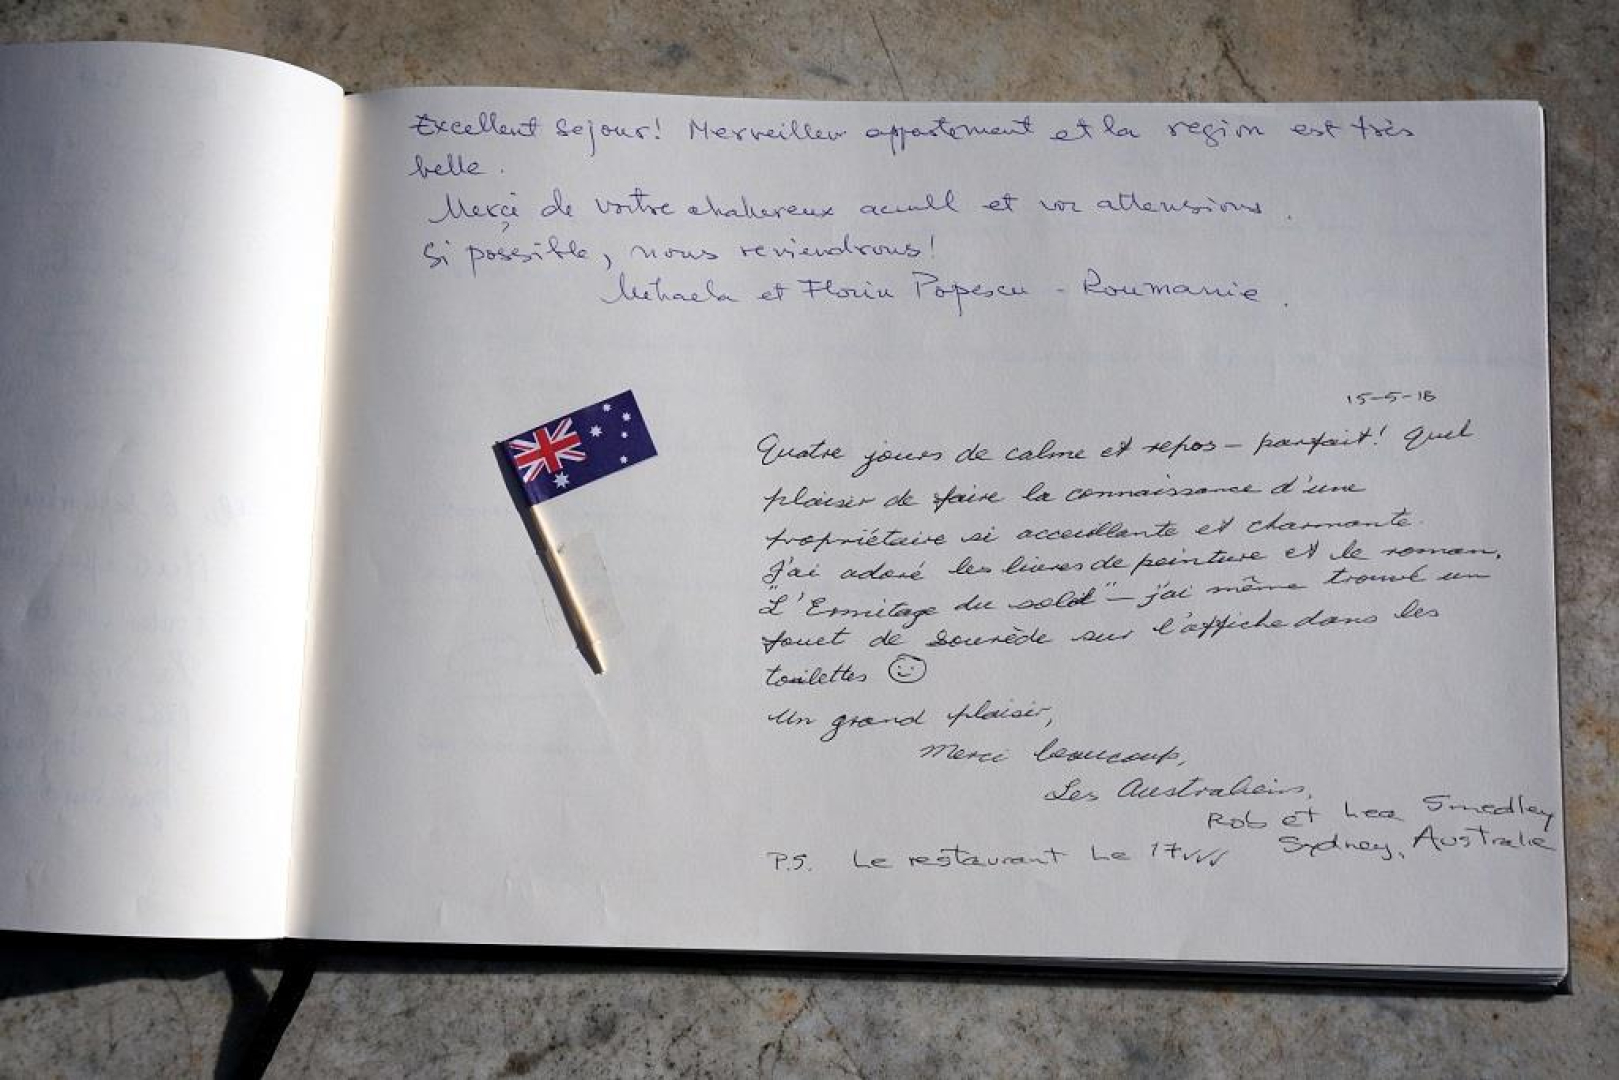 Excellent sejour! Merveilleux appartement et la region est très
belle.
Merci de votre chalereux acuell et vos attensions.
Si possible, nous reviendrons!
Mihaela et Florin Popescu - Roumanie.
15-5-18
Quatre jours de calme et repos — parfait! Quel
plaisir de faire la connaissance d'une
propriétaire si acceuillante et charmante.
J'ai adoré les livres de peinture et le roman,
"L'Ermitage du soleil" — j'ai même trouvé un
jouet de Sourède sur l'affiche dans les
toilettes ☺
Un grand plaisir,
Merci beaucoup,
Les Australiens,
Rob et Lea Smedley
Sydney, Australie
P.S. Le restaurant Le 17 ✓✓✓